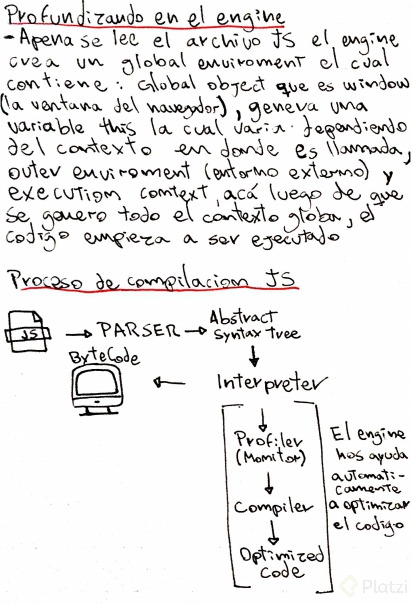 Profundizando en el engine
- Apena se lee el archivo JS el engine
crea un global enviroment el cual
contiene: Global object que es window
(la ventana del navegador), genera una
variable this la cual varia dependiendo
del contexto en donde es llamada,
outer enviroment (entorno externo) y
execution context, acá luego de que
se genero todo el contexto globa, el
codigo empieza a ser ejecutado
Proceso de compilacion JS
JS
PARSER
Abstract
Syntax tree
ByteCode
Interpreter
Profiler
(Monitor)
Compiler
Optimized
Code
El engine
nos ayuda
automati-
camente
a optimizar
el codigo
Platzi